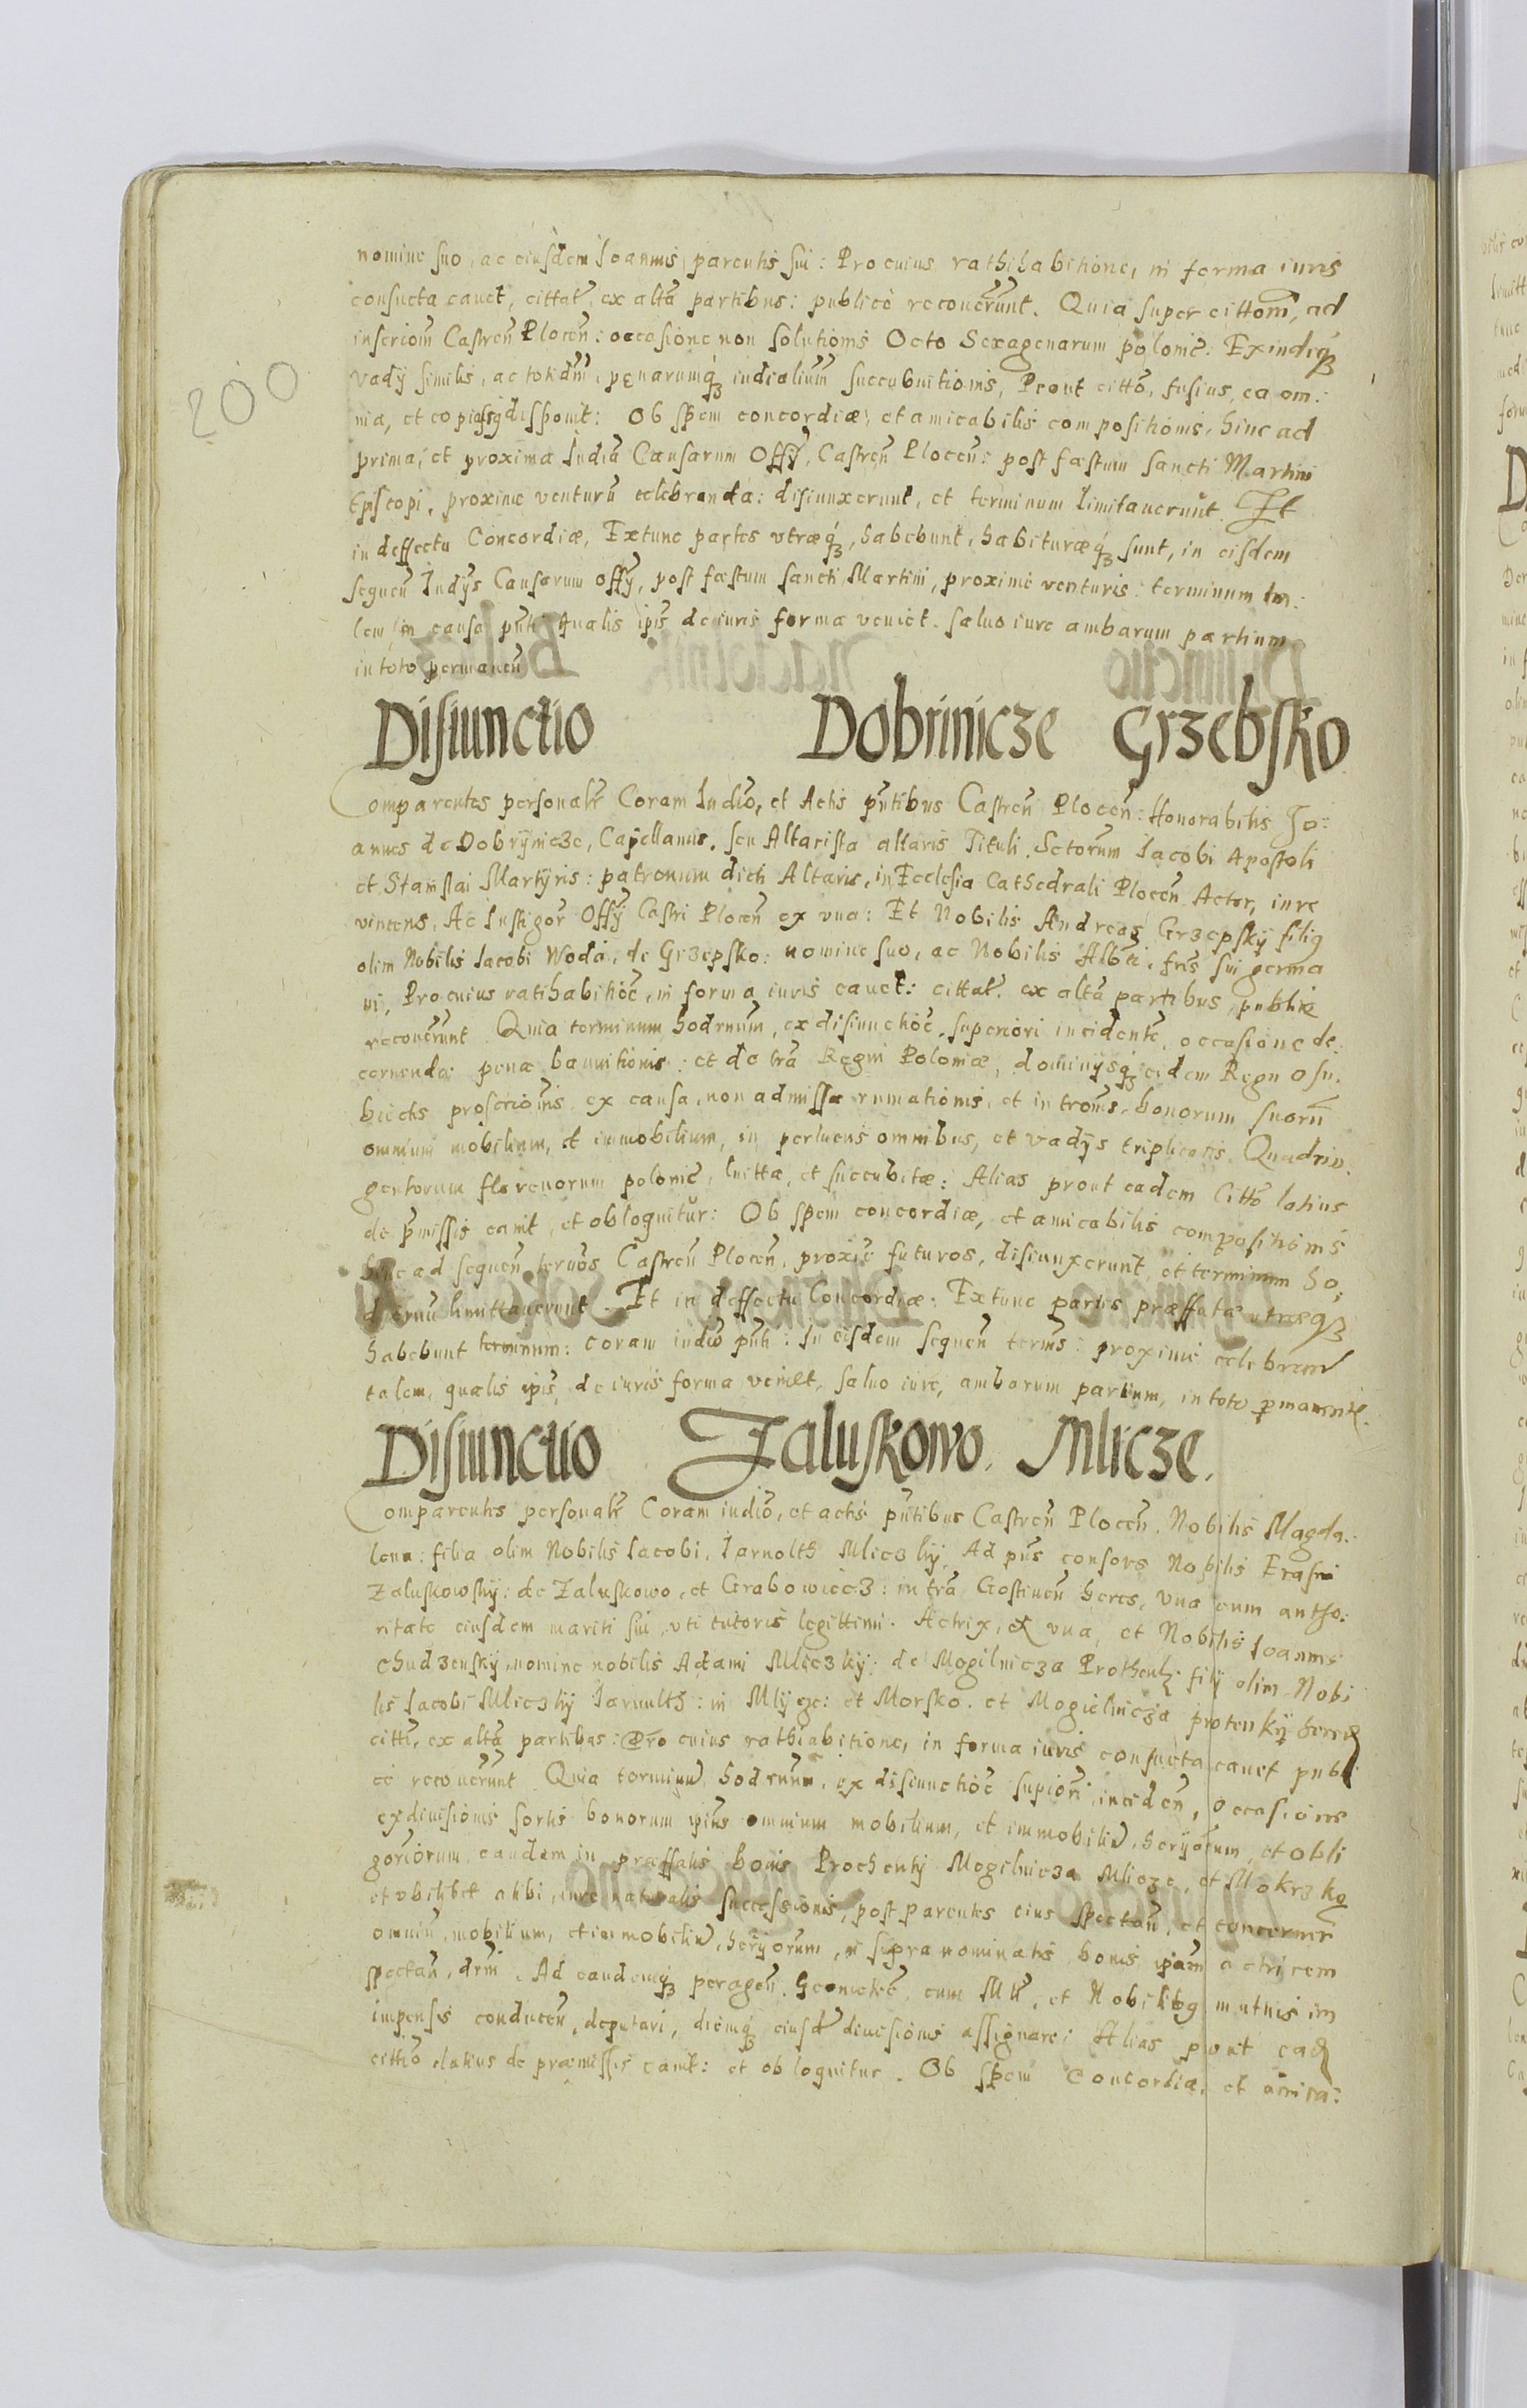 nomine suo, ac eiusdem Ioannis, parentis sui: Pro cuius rathihabitione, in forma iuris
consueta cauet, cittat̃ ex altã partibus: publice recouerũnt. Quia super cittom̃, ad
inscriom̃ Castreñ Ploceñ: occasione non solutionis Octo Sexagenarum polonic̃: Exindeqꝫ
vadÿ similis, ac totidm̃, penarumqꝫ iudicaliũm succubuitionis, Prout citto, fusius, ea om:
nia, et disponit: Ob spem concordiæ, et amicabilis compositionis, hinc ad
prima, et proxima Iudiã Causarum Offÿ, Castreñ Ploceñ: post fæstum sancti Martini
Episcopi, proxime venturũ celebranda: disiunxerunt, et terminum limitauerunt. Et
in deffectu Concordiæ, Extunc partes vtræqꝫ, habebunt, habituræqꝫ sunt, in eisdem
sequeñ Iudÿs Causarum offÿ, post fæstum sancti Martini, proxime venturis: terminum
lem in causa pñti qualis ipĩs de iuris forma veniet. saluo iure ambarum partium
in toto permaneñ
Disiunctio Dobrinicze Grzebsko
Comparentes personalr̃ Coram Iudiõ, et Actis pñtibus Castreñ Ploceñ: Honorabilis Jo:
annes de Dobrÿnicze, Capellanus, seu Altarista altaris Tituli. Sctorũm Iacobi Apostoli
et Stanislai Martÿris: patronum dicti Altaris, in Ecclesia Cathedrali Ploceñ Actor, in re
vincens, Ac Instigor̃ Offÿ Castri Ploceñ ex vna: Et Nobilis Andreas Grzepskÿ filiꝯ
olim Nobilis Iacobi Woda, de Grzepsko: nomine suo, ac Nobilis Albti. fris̃ sui germa
ni, Pro cuius ratihabitioẽ, in forma iuris cauet: cittat̃. ex altã partibus, publice
recouerũnt. Quia terminum hodrnũm, ex disiunctioẽ superiori incidentẽ, occasione de:
cernenda pene bannitionis: et de trã Regni Poloniæ, dominÿsqꝫ eidem Regno su:
biectis proscriois̃ ex causa, non admissæ rumationis, et introms̃, bonorum suorũ
omnium mobilium, et immobilium, in perlucris omnibus, et vadÿs triplicatis Quadrin:
gentorum florenorum polonic̃, luittæ, et succubitæ: Alias prout eadem Cittõ latius
de p̃missis canit, et obloquitur: Ob spem concordiæ, et amicabilis compositionis
hinc ad sequeñ termõs Castreñ Ploceñ, proxiẽ futuros, disiunxerunt, et terminum ho:
diernũ limittauerunt. Et in deffectu Concordiæ: Extunc partes præffatæ utræqꝫ
habebunt terminum: coram iudiõ pñti: In eisdem sequeñ terms̃: proxime celebranđ
talem, qualis ipĩs, de iuris forma veniet, saluo iure, ambarum partium, in toto ꝑmanente.
Disiunctio Zaluskowo. Mlicze.
Comparentes personalr̃ Coram iudiõ, et actis pñtibus Castreñ Ploceñ. Nobilis Magda:
lena: filia olim Nobilis Iacobi. Iarnolth Mliczkÿ, Ad pñs consors Nobilis Erasmi
Zaluskowskÿ: de Zaluskowo, et Grabowiecz: in trã Gostineñ heres, vna cum autho:
ritate eiusdem mariti sui, vti tutoris legittimi. Actrix, ex vna, et Nobilis Ioannis
Chudzenskÿ, nomine nobilis Adami Mliczkÿ: de Mogilnicza filÿ olim Nobi
lis Iacobi Mliczkÿ Iarnulth: in Mlÿcze: et Morsko. et Mogielnicza
cittĩ, ex altã partibus: Pro cuius rathiabitione, in forma iuris consueta cauet publi
ce recouerũnt. Quia terminũ hodrnũm, ex disiunctioẽ supiori incideñ, occasione
exdiuisionis sortis bonorum ipĩus omnium mobilium, et immobiliũ, herÿorum, et obli
goriorum eandem in præffatis bonis Prochenkÿ Mogilnicza Mlicze, et Mokrzko
et vbilibet alibi, iure naturalis successionis, post parentes eius spectañ, et concerneñ
omniũ, mobilium, et immobiliũ, herÿorum, in supra nominatis bonis ipsam actricem
spectañ, drm̃. Ad eandemqꝫ perageñ. Geometrẽ, cum Mil̃, et Nobilibꝯ mutuis im
impensis conduceñ, deputari, diemqꝫ eiusđ diuisionis assignare: Alias prout eađ
cittio elatius de præmissis canit: et obloquitur. Ob spem Concordiæ, et amica:
200